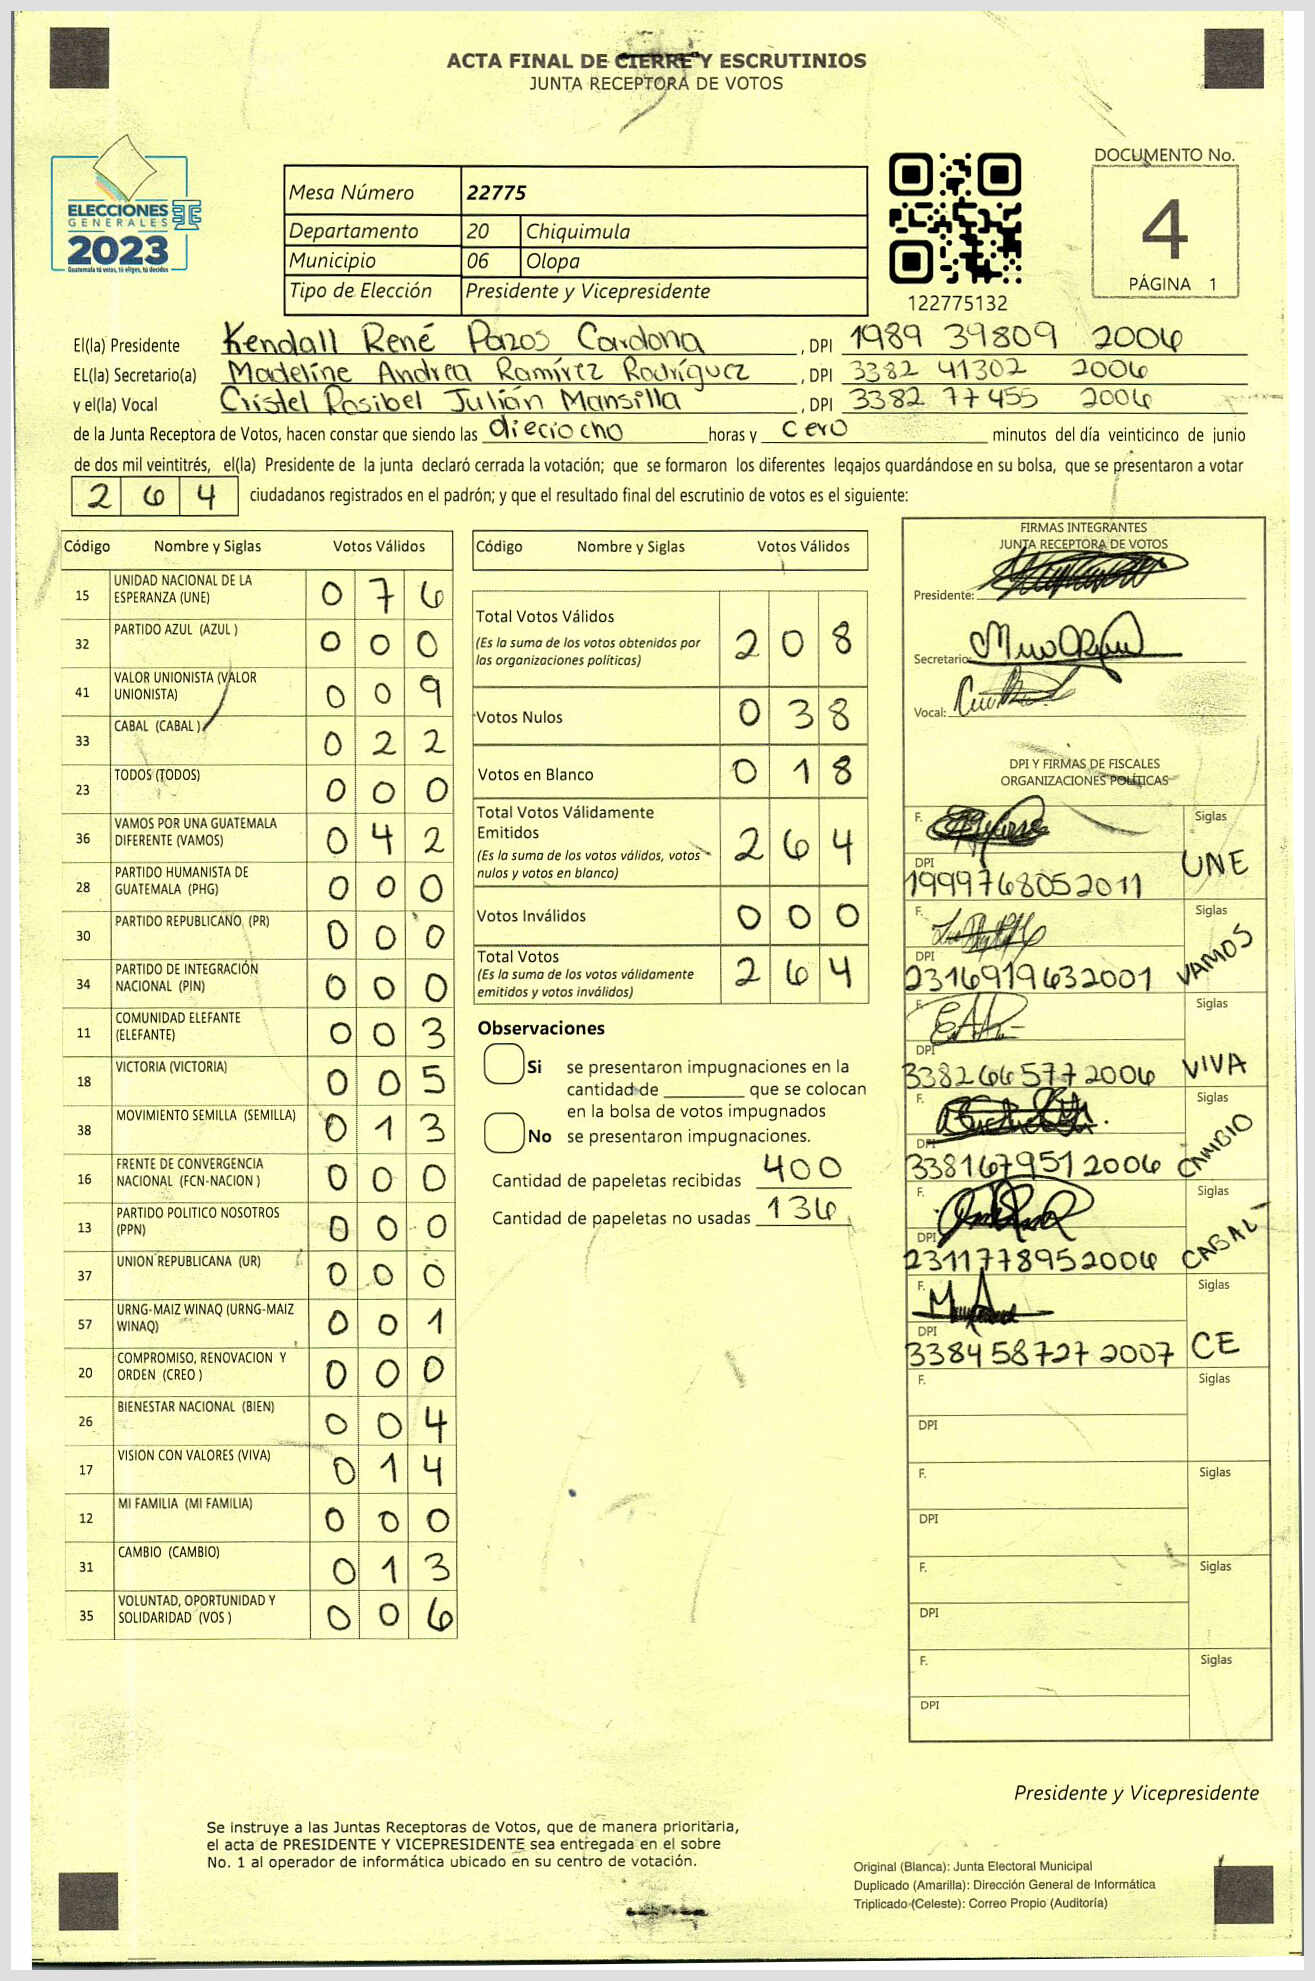 ACTA FINAL DE CIERRE Y ESCRUTINIOS
JUNTA RECEPTORA DE VOTOS
ELECCIONES
GENERALES
2023
Guatemala tú votas, tú eliges, tú decides
TSE
Mesa Número 22775
Departamento 20 Chiquimula
Municipio 06 Olopa
Tipo de Elección Presidente y Vicepresidente
122775132
DOCUMENTO No.
4
PÁGINA 1
El(la) Presidente Kendall René Pazos Cardona, DPI 1989 39809 2006
EL(la) Secretario(a) Madeline Andrea Ramírez Rodríguez, DPI 3382 41302 2006
y el(la) Vocal Cristel Rosibel Julián Mansilla, DPI 3382 77455 2006
de la Junta Receptora de Votos, hacen constar que siendo las dieciocho horas y cero minutos del día veinticinco de junio
de dos mil veintitrés, el(la) Presidente de la junta declaró cerrada la votación; que se formaron los diferentes legajos guardándose en su bolsa, que se presentaron a votar
264 ciudadanos registrados en el padrón; y que el resultado final del escrutinio de votos es el siguiente:
Código Nombre y Siglas Votos Válidos
15 UNIDAD NACIONAL DE LA ESPERANZA (UNE) 076
32 PARTIDO AZUL (AZUL ) 000
41 VALOR UNIONISTA (VALOR UNIONISTA) 009
33 CABAL (CABAL ) 022
23 TODOS (TODOS) 000
36 VAMOS POR UNA GUATEMALA DIFERENTE (VAMOS) 042
28 PARTIDO HUMANISTA DE GUATEMALA (PHG) 000
30 PARTIDO REPUBLICANO (PR) 000
34 PARTIDO DE INTEGRACIÓN NACIONAL (PIN) 000
11 COMUNIDAD ELEFANTE (ELEFANTE) 003
18 VICTORIA (VICTORIA) 005
38 MOVIMIENTO SEMILLA (SEMILLA) 013
16 FRENTE DE CONVERGENCIA NACIONAL (FCN-NACION ) 000
13 PARTIDO POLITICO NOSOTROS (PPN) 000
37 UNION REPUBLICANA (UR) 000
57 URNG-MAIZ WINAQ (URNG-MAIZ WINAQ) 001
20 COMPROMISO, RENOVACION Y ORDEN (CREO ) 000
26 BIENESTAR NACIONAL (BIEN) 004
17 VISION CON VALORES (VIVA) 014
12 MI FAMILIA (MI FAMILIA) 000
31 CAMBIO (CAMBIO) 013
35 VOLUNTAD, OPORTUNIDAD Y SOLIDARIDAD (VOS ) 006
Código Nombre y Siglas Votos Válidos
Total Votos Válidos
(Es la suma de los votos obtenidos por las organizaciones políticas) 208
Votos Nulos 038
Votos en Blanco 018
Total Votos Válidamente Emitidos
(Es la suma de los votos válidos, votos nulos y votos en blanco) 264
Votos Inválidos 000
Total Votos
(Es la suma de los votos válidamente emitidos y votos inválidos) 264
Observaciones
Si se presentaron impugnaciones en la
cantidad de ________ que se colocan
en la bolsa de votos impugnados
No se presentaron impugnaciones.
Cantidad de papeletas recibidas 400
Cantidad de papeletas no usadas 136
FIRMAS INTEGRANTES
JUNTA RECEPTORA DE VOTOS
Presidente:
Secretario:
Vocal:
DPI Y FIRMAS DE FISCALES
ORGANIZACIONES POLÍTICAS
F. Siglas
DPI UNE
1999768052011
F. Siglas
DPI VAMOS
2316919632001
F. Siglas
DPI VIVA
3382665772006
F. Siglas
DPI CAMBIO
3381679512006
F. Siglas
DPI CABAL
2311778952006
F. Siglas
DPI CE
3384587272007
F. Siglas
DPI
F. Siglas
DPI
F. Siglas
DPI
F. Siglas
DPI
Presidente y Vicepresidente
Se instruye a las Juntas Receptoras de Votos, que de manera prioritaria,
el acta de PRESIDENTE Y VICEPRESIDENTE sea entregada en el sobre
No. 1 al operador de informática ubicado en su centro de votación.
Original (Blanca): Junta Electoral Municipal
Duplicado (Amarilla): Dirección General de Informática
Triplicado (Celeste): Correo Propio (Auditoría)